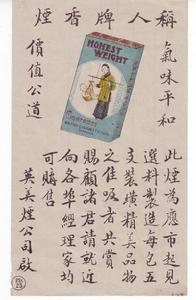 稱人牌香煙
氣味平和
價值公道
HONEST
WEIGHT
CIGARETTES
此煙為應市起見
選料製造每包五
支裝璜精美品物
之佳吸者共賞
賜顧諸君請就近
向各埠經理家均
可賒售
英美煙公司啟